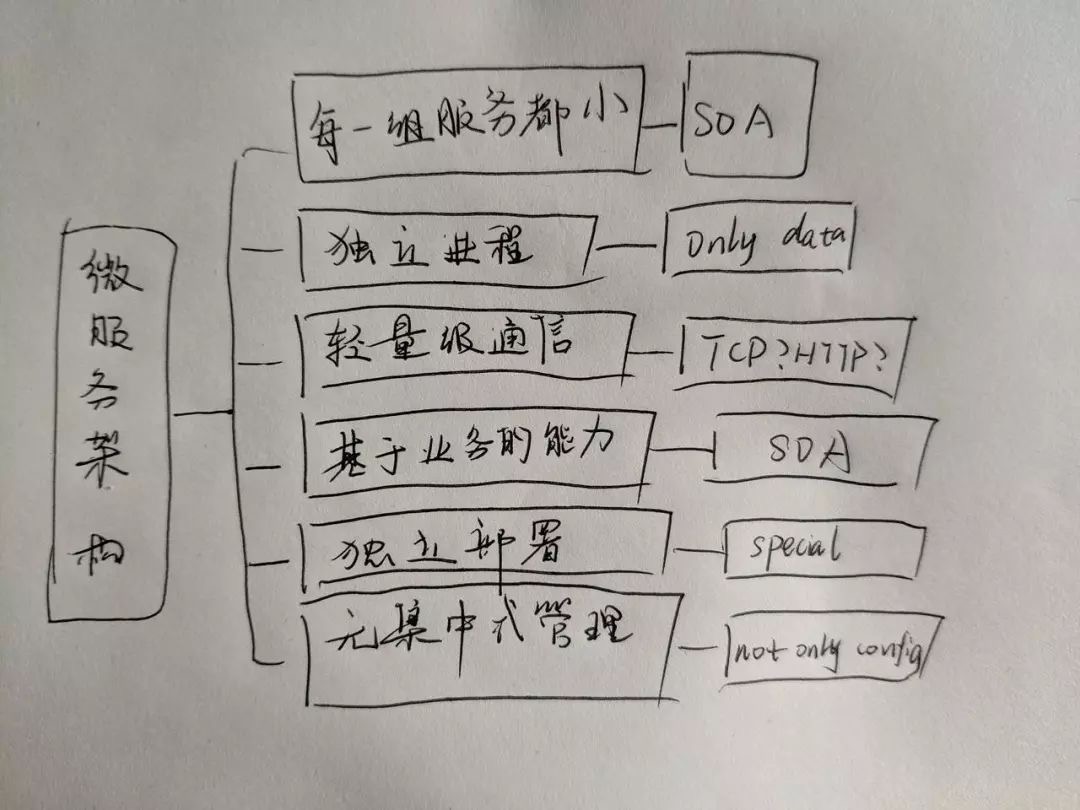 微服务架构
每一组服务都小
SOA
独立进程
only data
轻量级通信
TCP?HTTP?
基于业务的能力
SOA
独立部署
special
无集中式管理
not only config